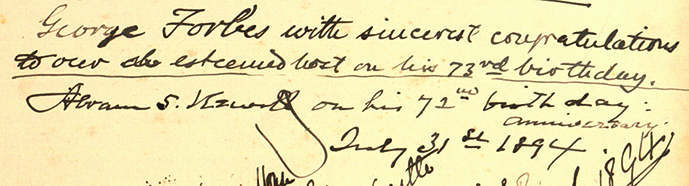 George Forbes with sincerest congratulations
to our esteemed host on his 73rd birthday.
Abram S. Hewitt on his 72nd birthday
anniversary.
July 31st 1894.
1894